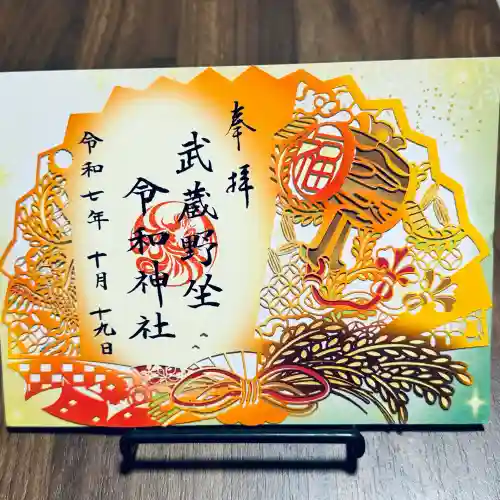 奉拝
武蔵野坐
令和神社
令和七年 十月 十九日
福